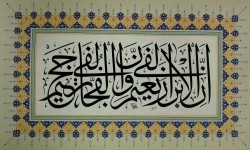 إن الأبرار لفي نعيم وإن الفجار لفي جحيم